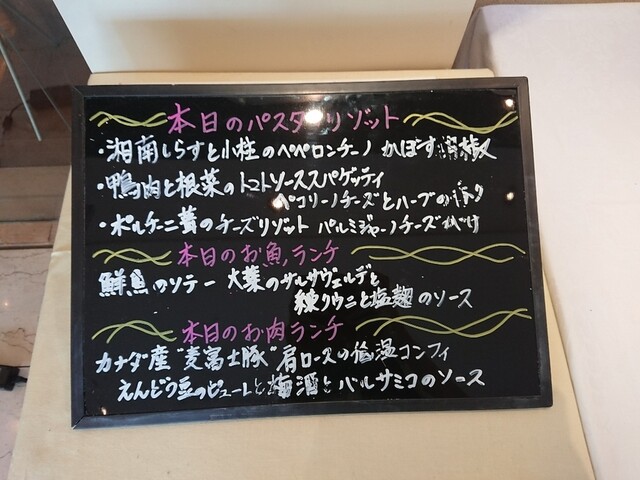 本日のパスタ リゾット
・湘南しらすと小柱のペペロンチーノ かぼす胡椒
・鴨肉と根菜のトマトソーススパゲッティ
ペコリーノチーズとハーブの香り
・ポルチーニ茸のチーズリゾット パルミジャーノチーズがけ
本日のお魚ランチ
鮮魚のソテー 大葉のサルサヴェルデと
練りウニと塩麹のソース
本日のお肉ランチ
カナダ産"麦富士豚"肩ロースの低温コンフィ
えんどう豆のピューレと梅酒とバルサミコのソース